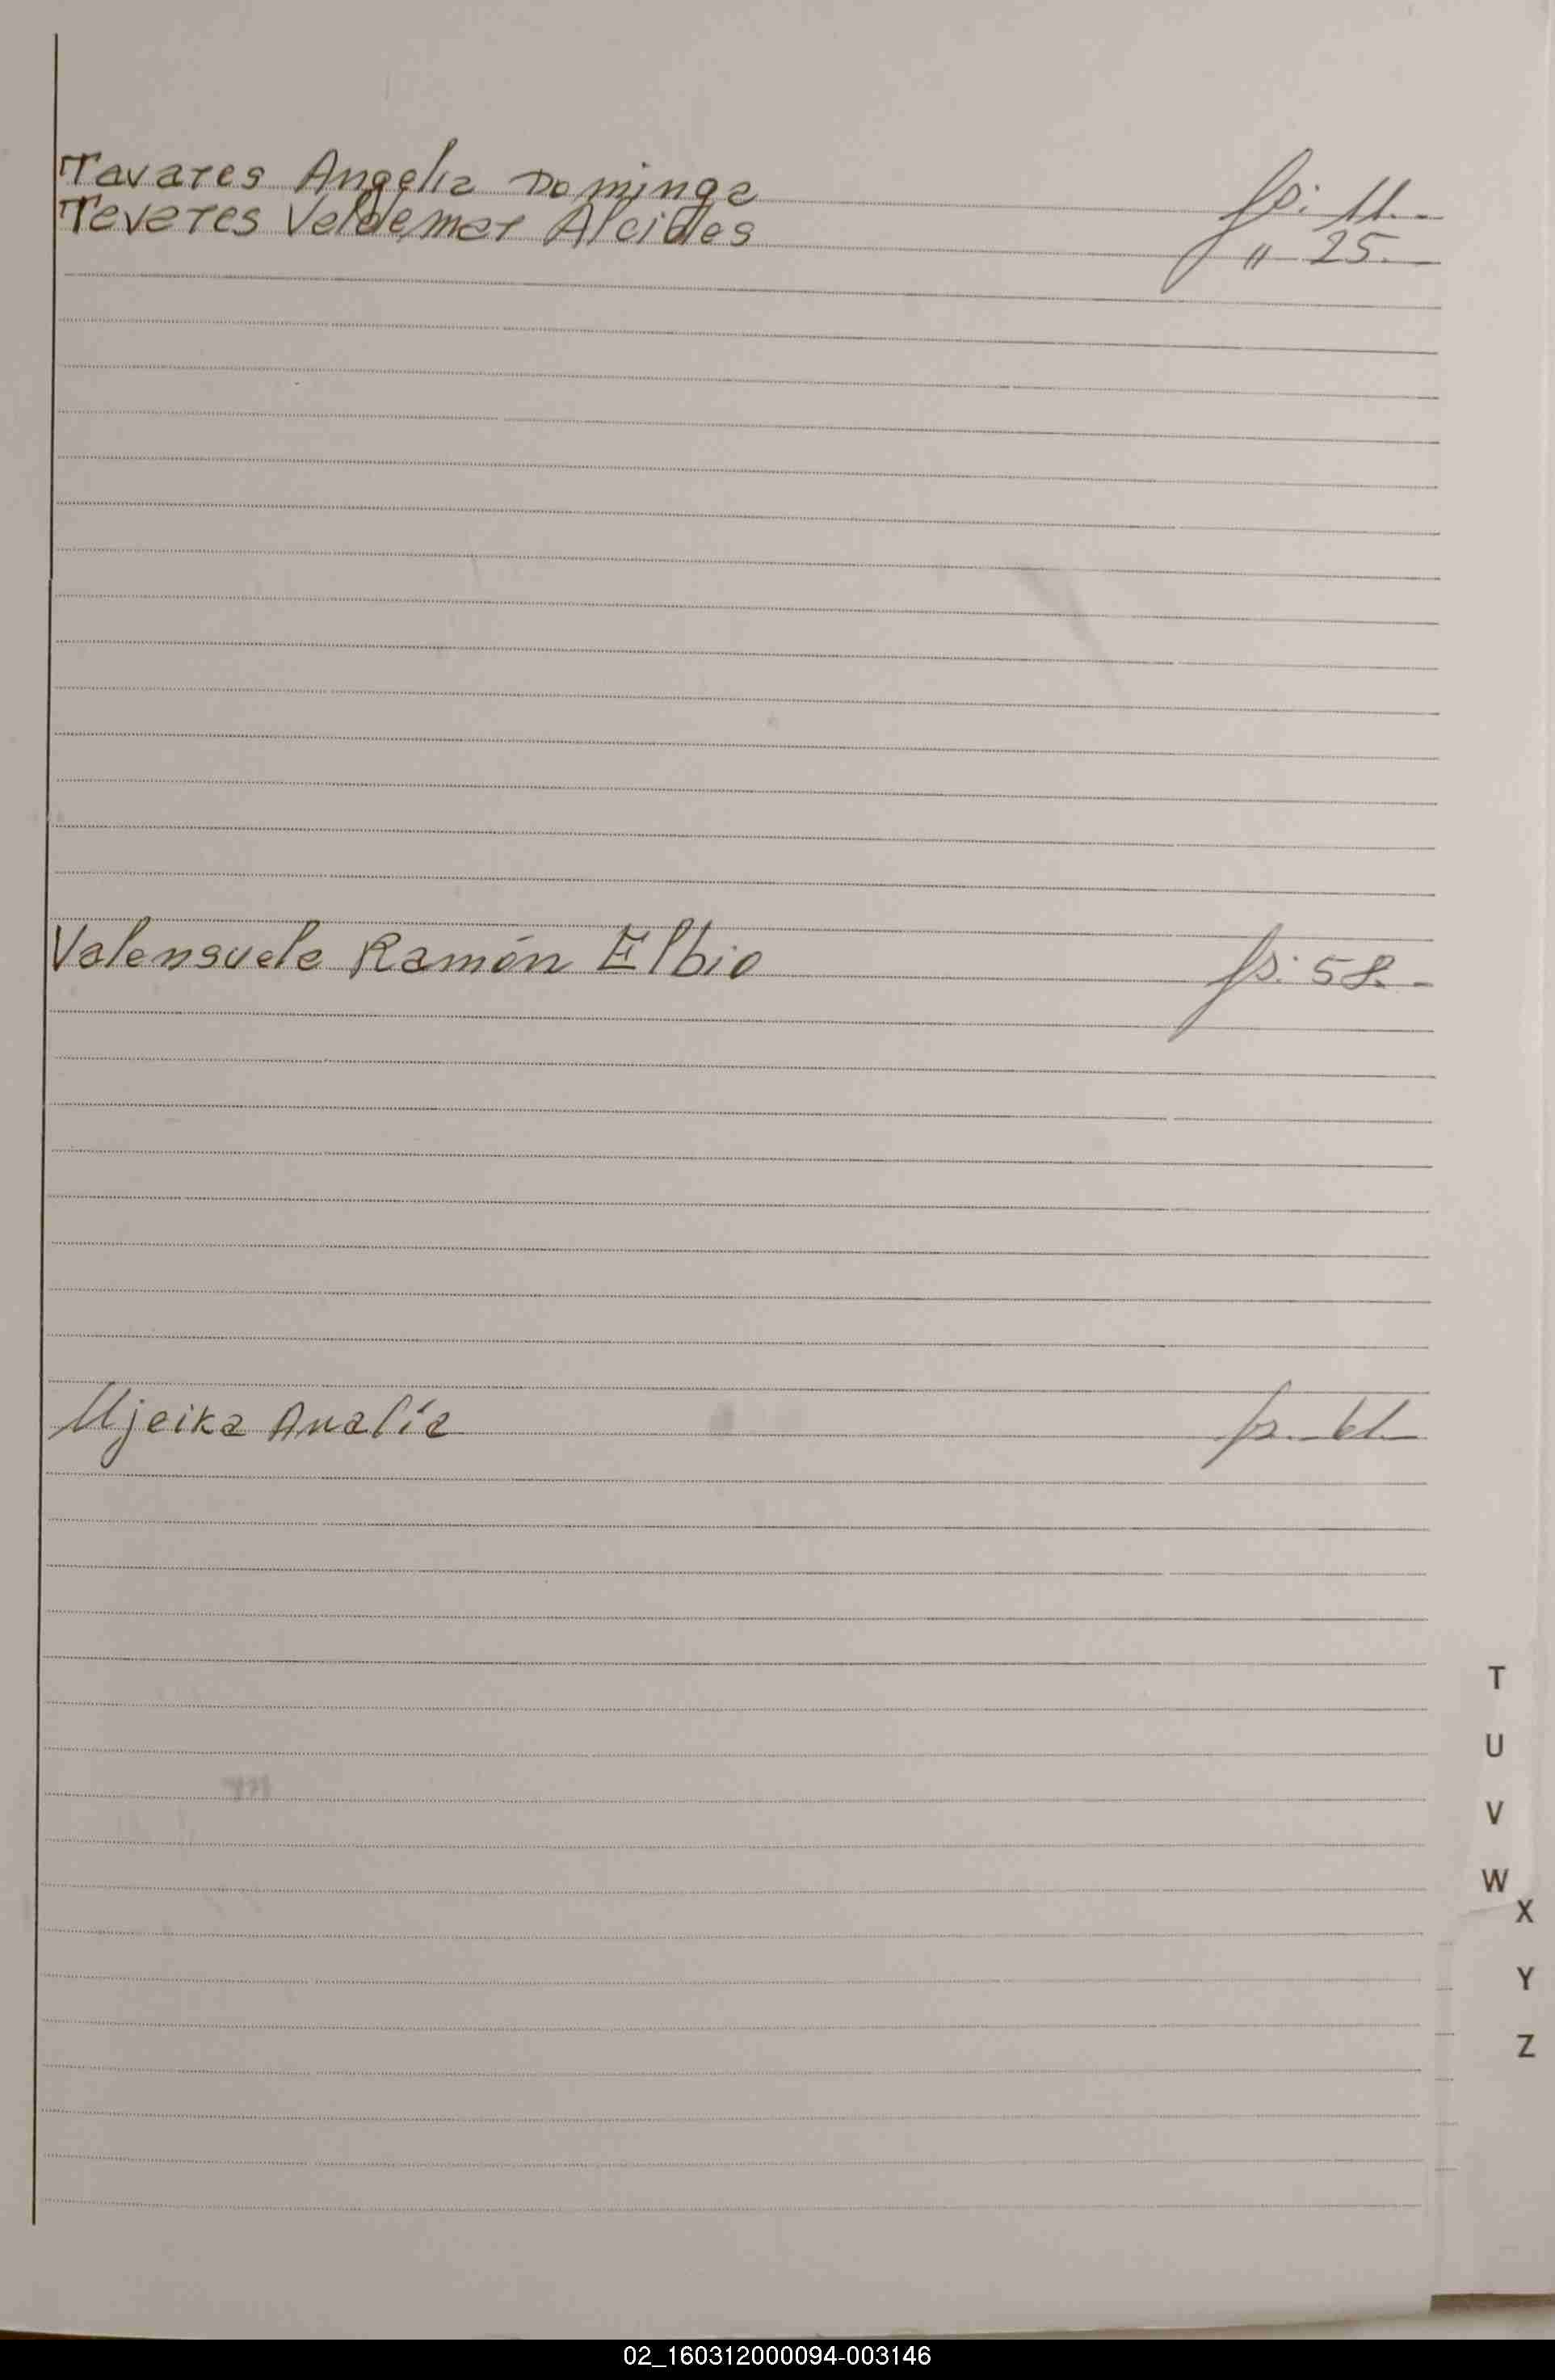 Tavares Angelia Dominga fs: 11.-
Tavares Valdemar Alcides " 25.-
Valensuela Ramón Elbio fs: 58.-
Ujeika Analía fs. 61.-
T
U
V
W
X
Y
Z
02_160312000094-003146